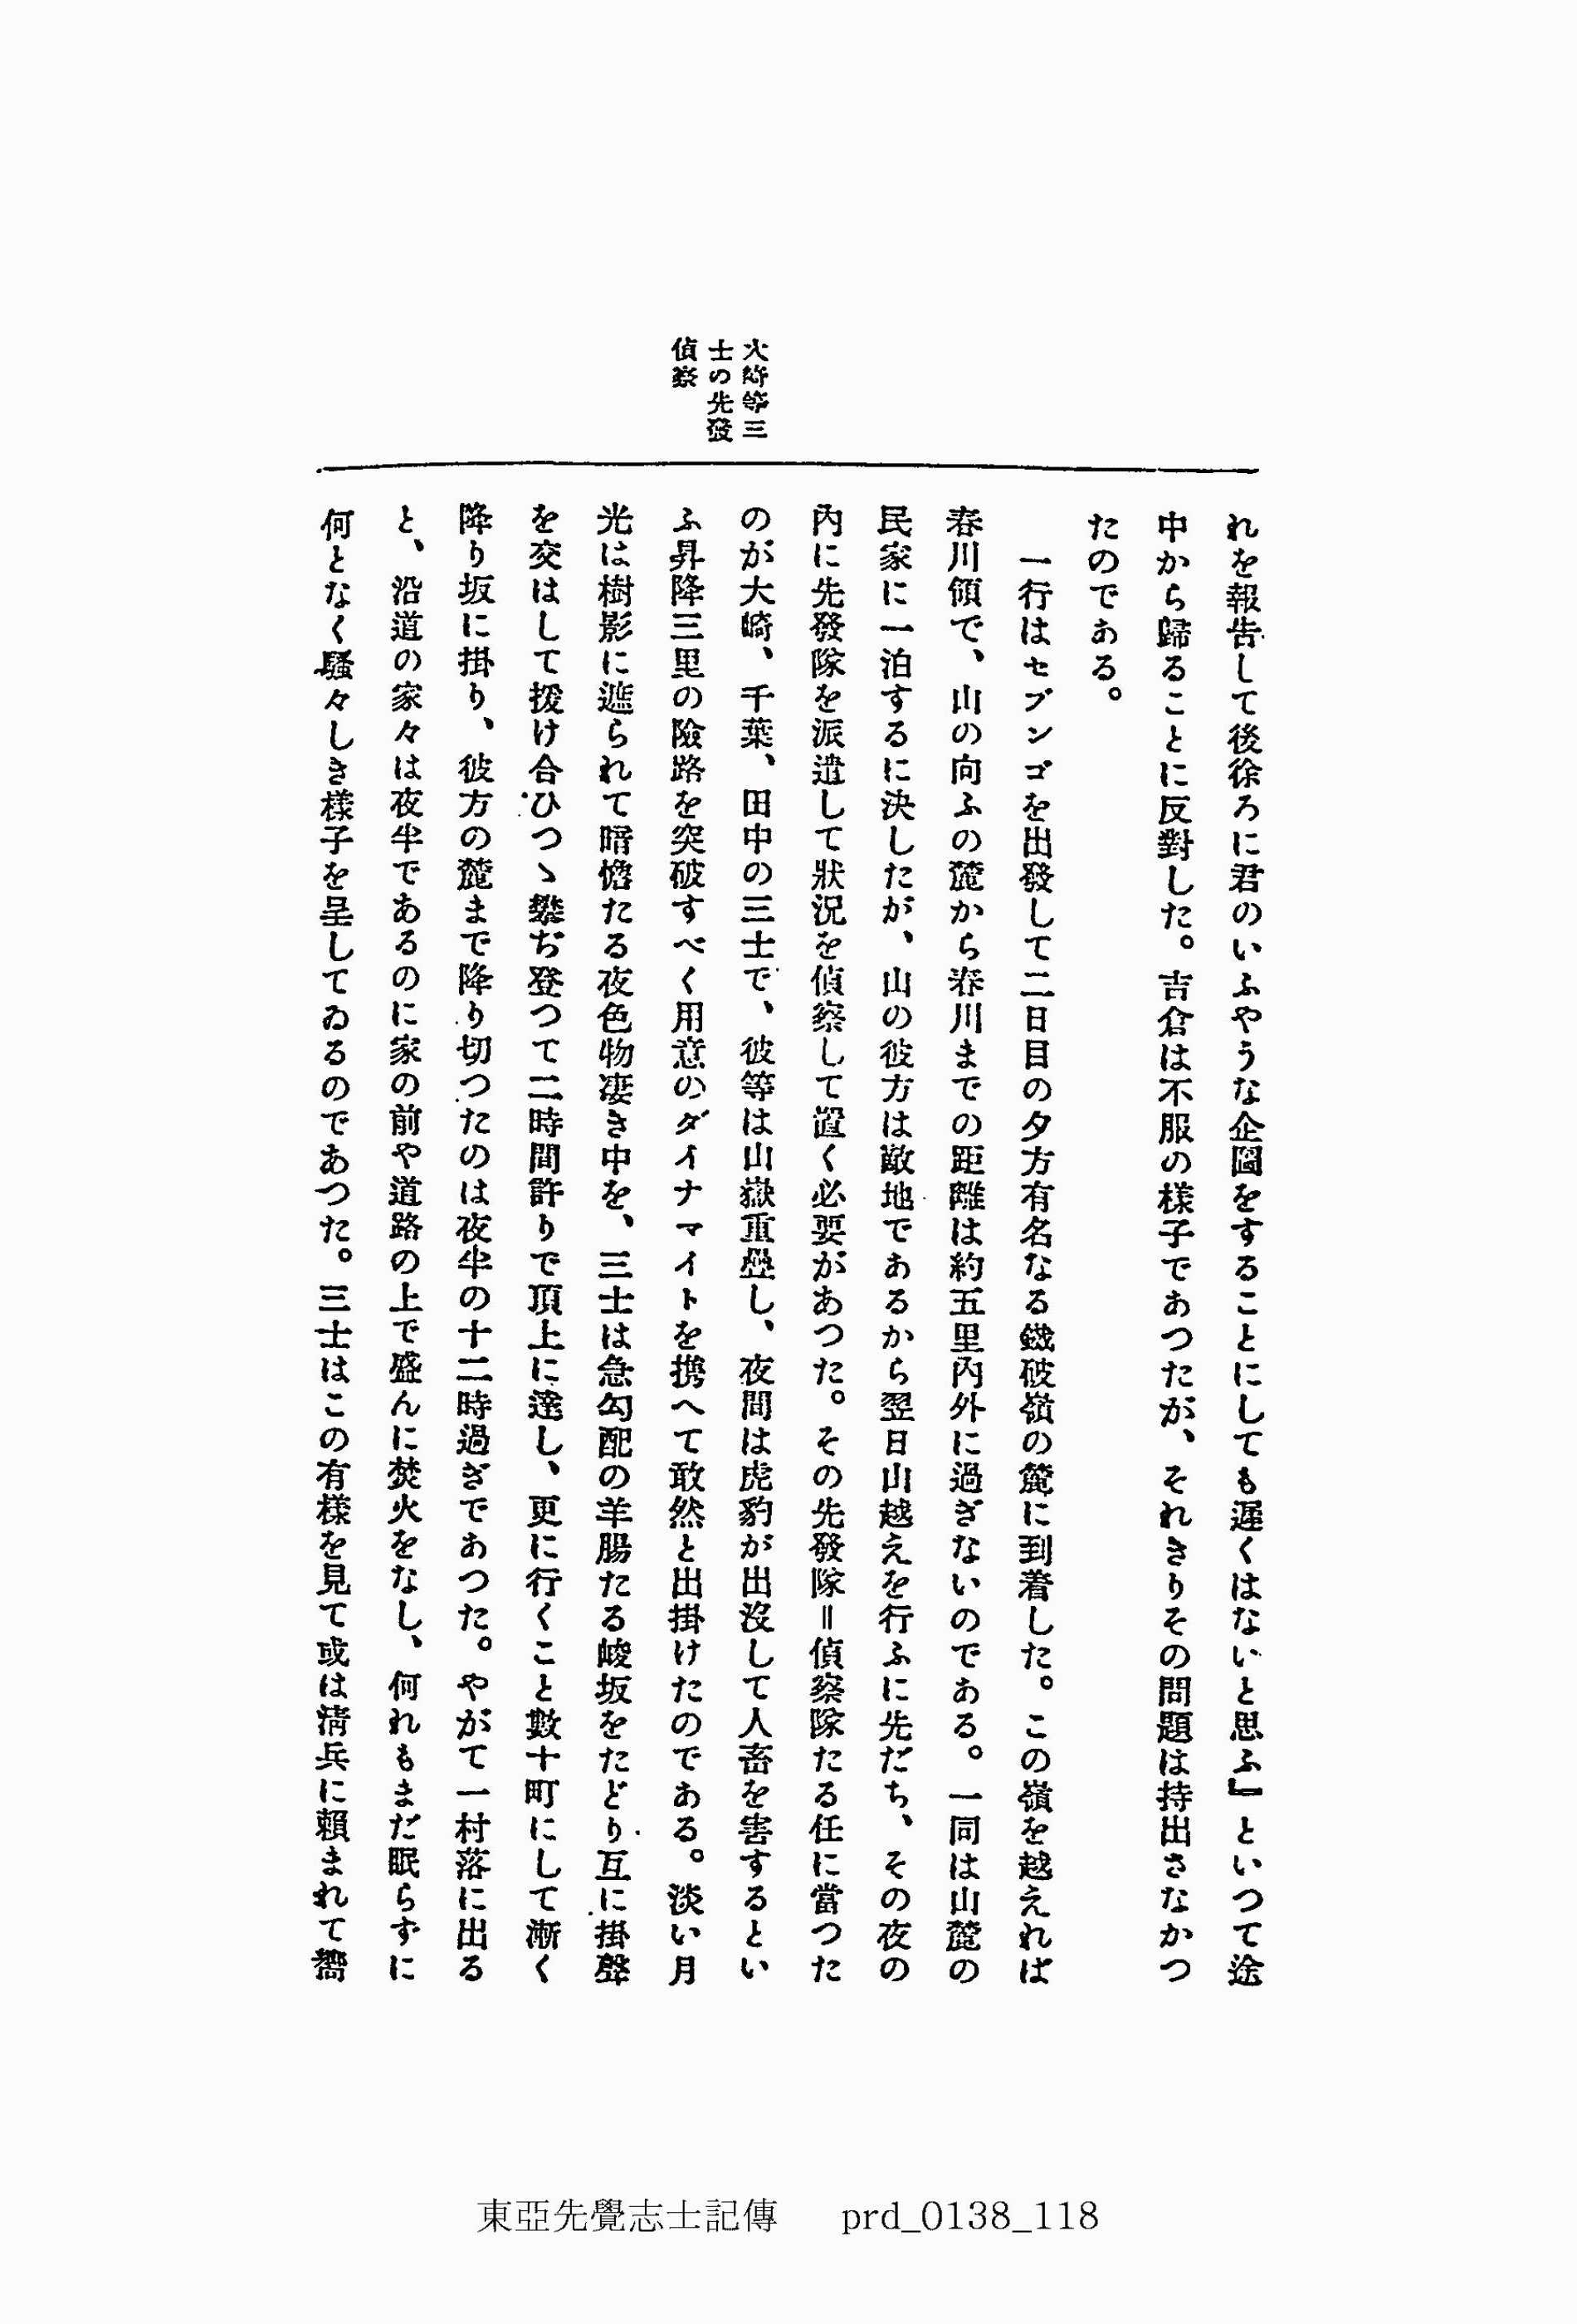 大崎等三
士の先發
偵察
れを報告して後徐ろに君のいふやうな企圖をすることにしても遲くはないと思ふ』といつて途
中から歸ることに反對した。吉倉は不服の樣子であつたが、それきりその問題は持出さなかつ
たのである。
一行はセブンゴを出發して二日目の夕方有名なる鐵破嶺の麓に到着した。この嶺を越えれば
春川領で、山の向ふの麓から春川までの距離は約五里內外に過ぎないのである。一同は山麓の
民家に一泊するに決したが、山の彼方は敵地であるから翌日山越えを行ふに先だち、その夜の
內に先發隊を派遣して狀況を偵察して置く必要があつた。その先發隊＝偵察隊たる任に當つた
のが大崎、千葉、田中の三士で、彼等は山嶽重疊し、夜間は虎豹が出沒して人畜を害するとい
ふ昇降三里の險路を突破すべく用意のダイナマイトを携へて敢然と出掛けたのである。淡い月
光は樹影に遮られて暗憺たる夜色物凄き中を、三士は急勾配の羊腸たる峻坂をたどり互に掛聲
を交はして援け合ひつゝ攀ぢ登つて二時間許りで頂上に達し、更に行くこと數十町にして漸く
降り坂に掛り、彼方の麓まで降り切つたのは夜半の十二時過ぎであつた。やがて一村落に出る
と、沿道の家々は夜半であるのに家の前や道路の上で盛んに焚火をなし、何れもまだ眠らずに
何となく騷々しき樣子を呈してゐるのであつた。三士はこの有樣を見て或は淸兵に賴まれて嚮
東亞先覺志士記傳 prd_0138_118